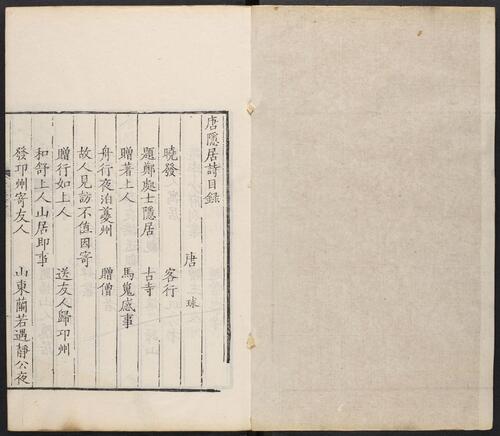 唐隱居詩目錄
唐 球
曉發 客行
題鄭處士隱居 古寺
贈著上人 馬嵬感事
舟行夜泊夔州 贈僧
故人見訪不值因寄
贈行如上人 送友人歸邛州
和舒上人山居即事
發邛州寄友人 山東蘭若遇靜公夜